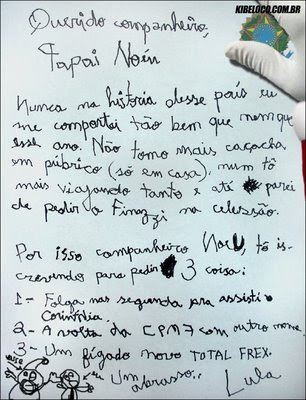 KIBELOCO.COM.BR
Querido companheiro,
Papai Noéu
Nunca na historia desse país eu
me comportei tão bem que nem que
esse ano. Não tomo mais caçacha
em púbrico (só em casa), num tô
mais viajando tanto e até parei
de pedir o Finozzi na celessão.
Por isso companheiro Noéu, tô is-
crevendo para pedir 3 coisa:
1- Folga nas segunda pra assisti
Corinthia.
2- A volta da CPMF com outro nome.
3- Um fígado novo TOTAL FREX.
Um abrasso..
Lula